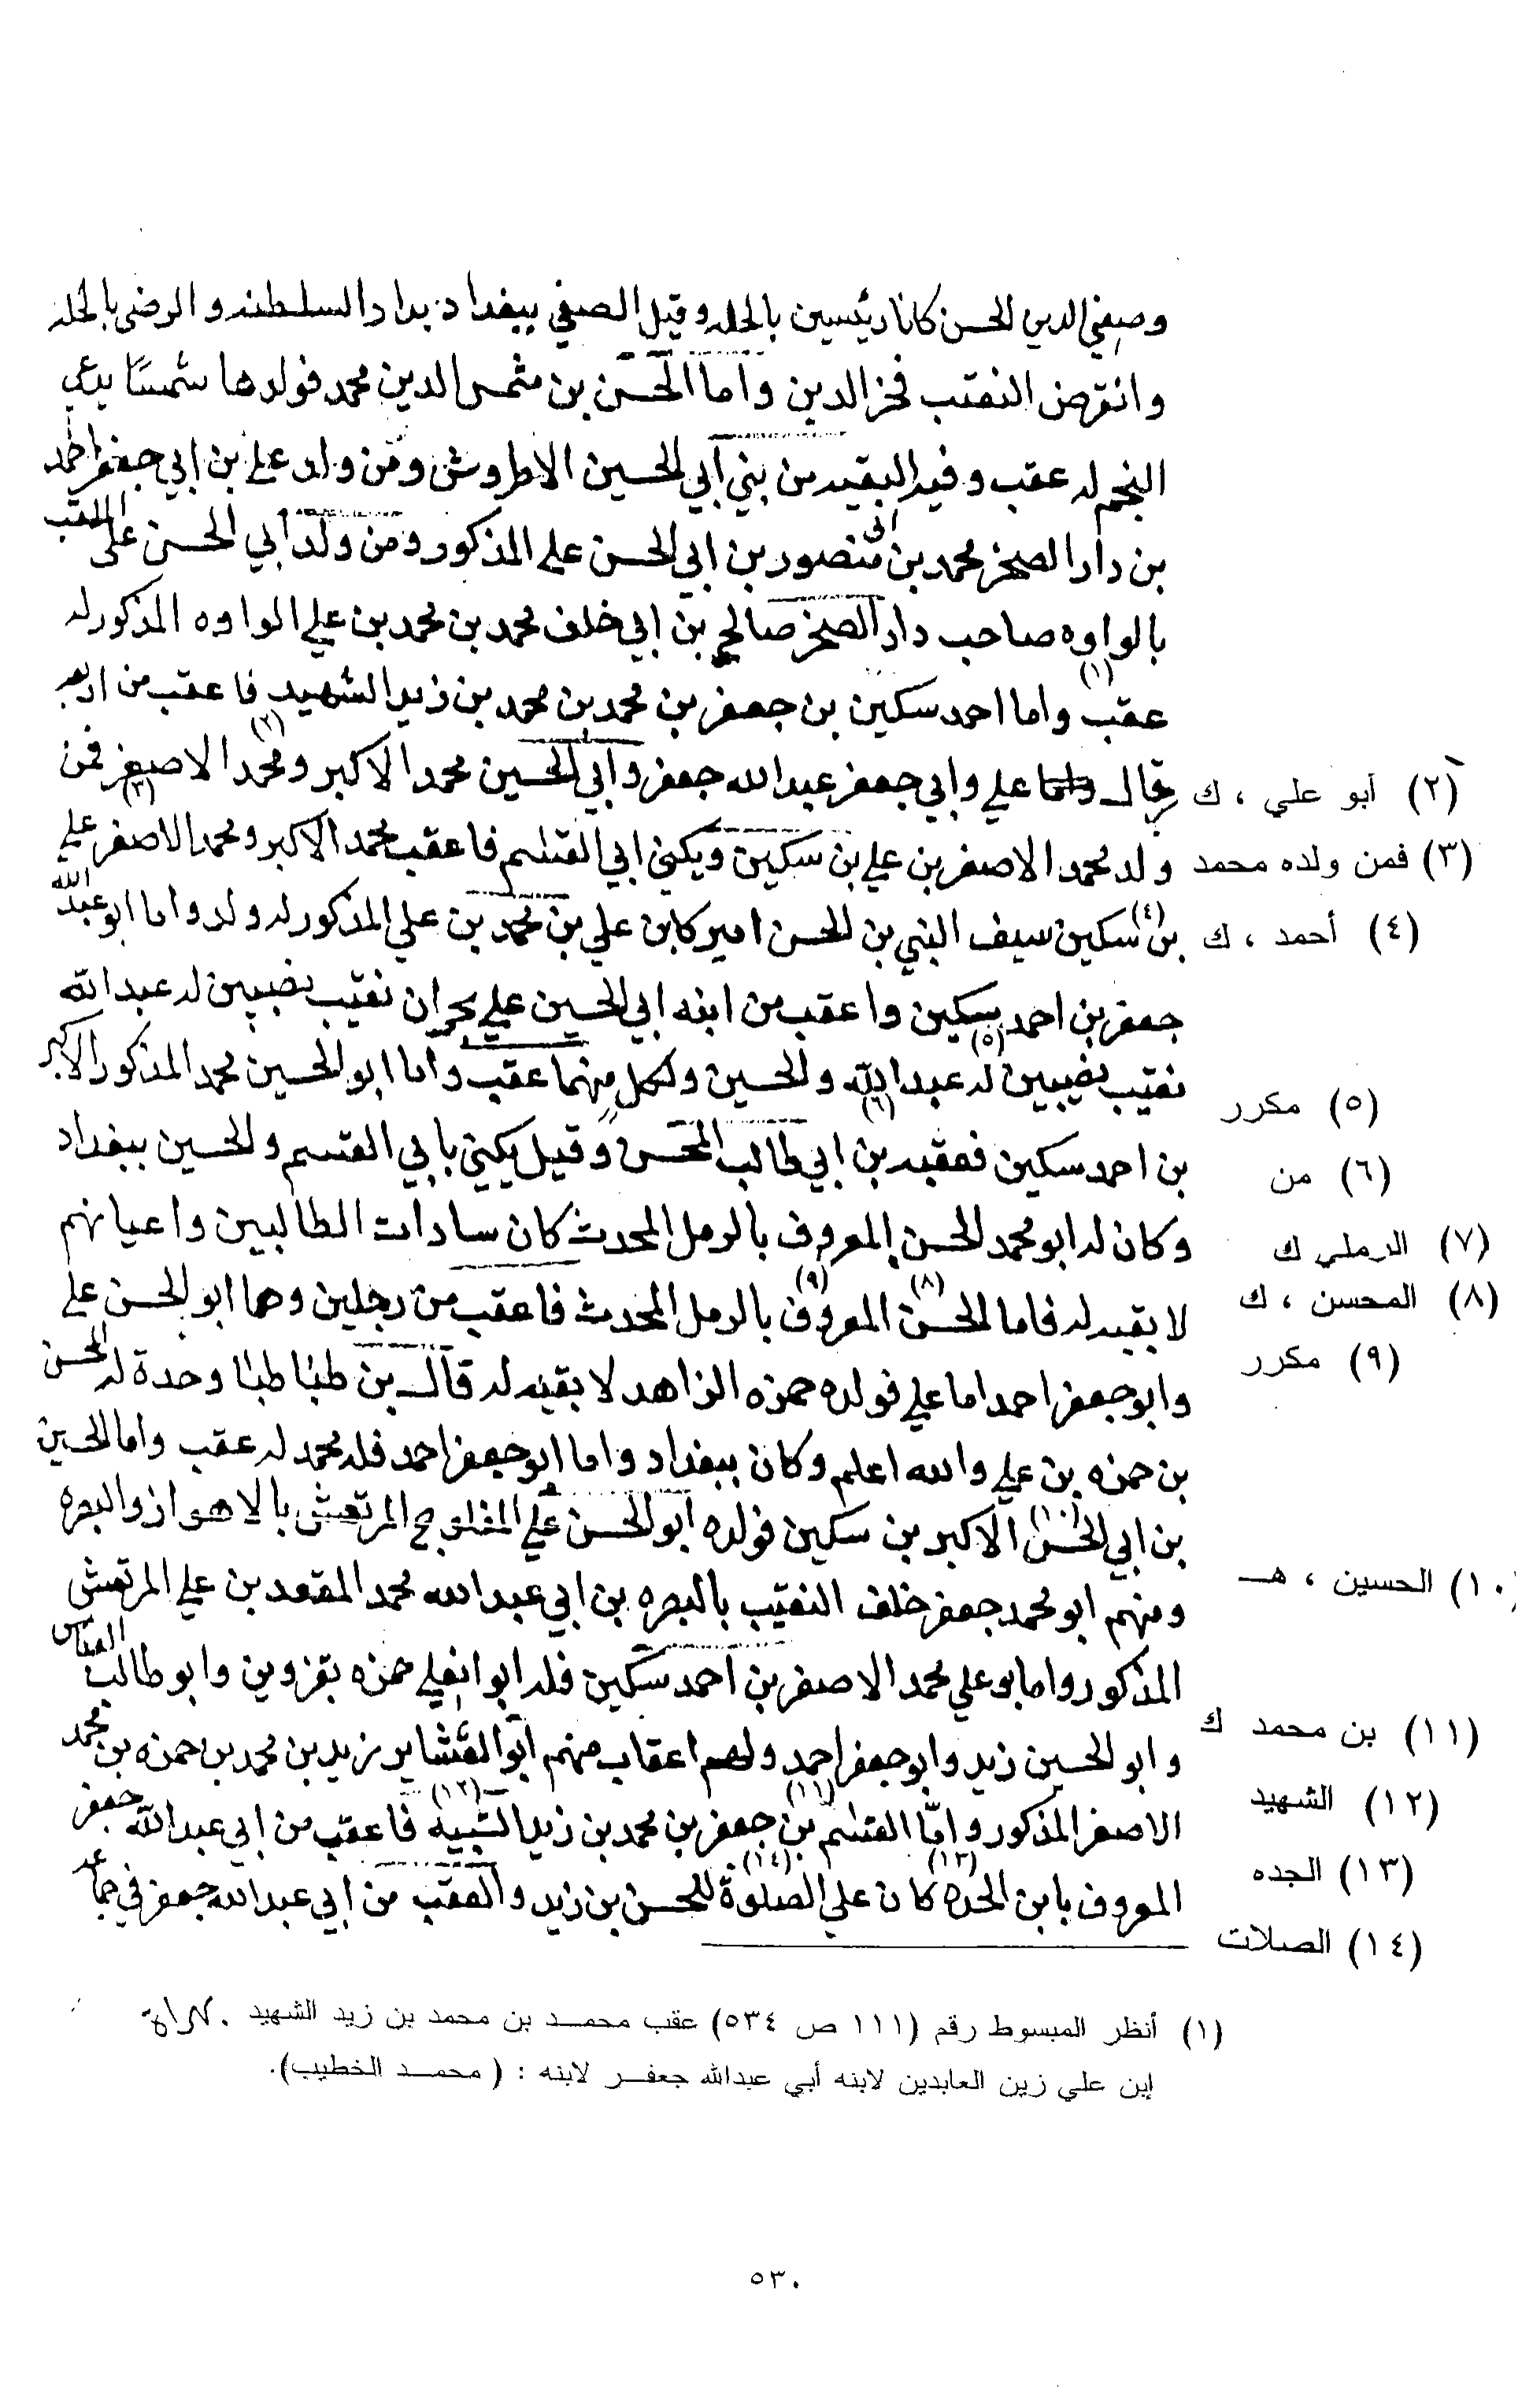 وصفي الدين الحسن كانا رئيسين بالحله وقيل الصفي ببغداد بدار السلطنه والرضى بالحله
وانقرض النقيب فخر الدين واما الحسن بن شمس الدين محمد فولدها شمسا يدعى
النجم له عقب وفيه البقيه من بني ابي الحسين الاطروش ومن ولد علي بن ابي جعفر احمد
بن دار الصخر محمد بن ابي منصور بن ابي الحسن علي المذكور ومن ولد ابي الحسن علي الملقب
بالواوه صاحب دار الصخر صالح بن ابي خلف محمد بن محمد بن علي الواوه المذكور له
عقب (١) واما احمد سكين بن جعفر بن محمد بن محمد بن زيد الشهيد فاعقب من اربعه
رجال علي وابي جعفر عبدالله جعفر وابي الحسين محمد الاكبر ومحمد (٢) الاصغر فمن
ولد محمد الاصغر بن علي بن سكين ويكنى ابي القسم فاعقب محمد الاكبر ومحمد الاصغر (٣) علي
بن (٤) سكين سيف النبي بن الحسن اميركا بن علي بن محمد بن علي المذكور له ولد واما ابو عبد الله
جعفر بن احمد سكين واعقب من ابنه ابي الحسين علي بحران نقيب نصيبين له عبدالله
نقيب نصيبين له (٥) عبدالله والحسين ولكل منهما عقب واما ابو الحسين محمد المذكور الاكبر
بن احمد سكين فعقبه بن (٦) ابي طالب المحسن وقيل يكنى بابي القسم والحسين ببغداد
وكان له ابو محمد الحسن المعروف بالرمل المحدث كان سادات الطالبيين واعيانهم
لا بقيه له فاما الحسن (٨) المعروف (٩) بالرمل المحدث فاعقب من رجلين وهما ابو الحسن علي
وابو جعفر احمد اما علي فولده حمزه الزاهد لا بقيه له قال بن طباطبا وحدة له الحسن
بن حمزه بن علي والله اعلم وكان ببغداد واما ابو جعفر احمد فله محمد له عقب واما الحسين
بن ابي الحسن (١٠) الاكبر بن سكين فولده ابو الحسن علي المفلوج المرتعش بالاهواز والبصره
ومنهم ابو محمد جعفر خلف النقيب بالبصره بن ابي عبدالله محمد المقعد بن علي المرتعش
المذكور واما بو علي محمد الاصغر بن احمد سكين فله ابو حمزه بقزوين وابو طالب العباس
وابو الحسين زيد وابو جعفر احمد ولهم اعقاب منهم زيد بن محمد بن حمزه بن محمد
الاصغر المذكور واما القسم بن (١١) جعفر بن محمد بن زيد (١٢) فاعقب من ابي عبدالله جعفر
المعروف بابن الجده (١٣) كان علي الصلوة (١٤) للحسن بن زيد والعقب من ابي عبدالله جعفر في جماعه
(٢) أبو علي ، ك
(٣) فمن ولده محمد
(٤) أحمد ، ك
(٥) مكرر
(٦) من
(٧) الرملي ك
(٨) المحسن ، ك
(٩) مكرر
(١٠) الحسين ، هـ
(١١) بن محمد ك
(١٢) الشهيد
(١٣) الجده
(١٤) الصلات
(١) أنظر المبسوط رقم (١١١ ص ٥٣٤) عقب محمد بن محمد بن زيد الشهيد
إبن علي زين العابدين لابنه أبي عبدالله جعفر لابنه : (محمد الخطيب).
٥٣٠